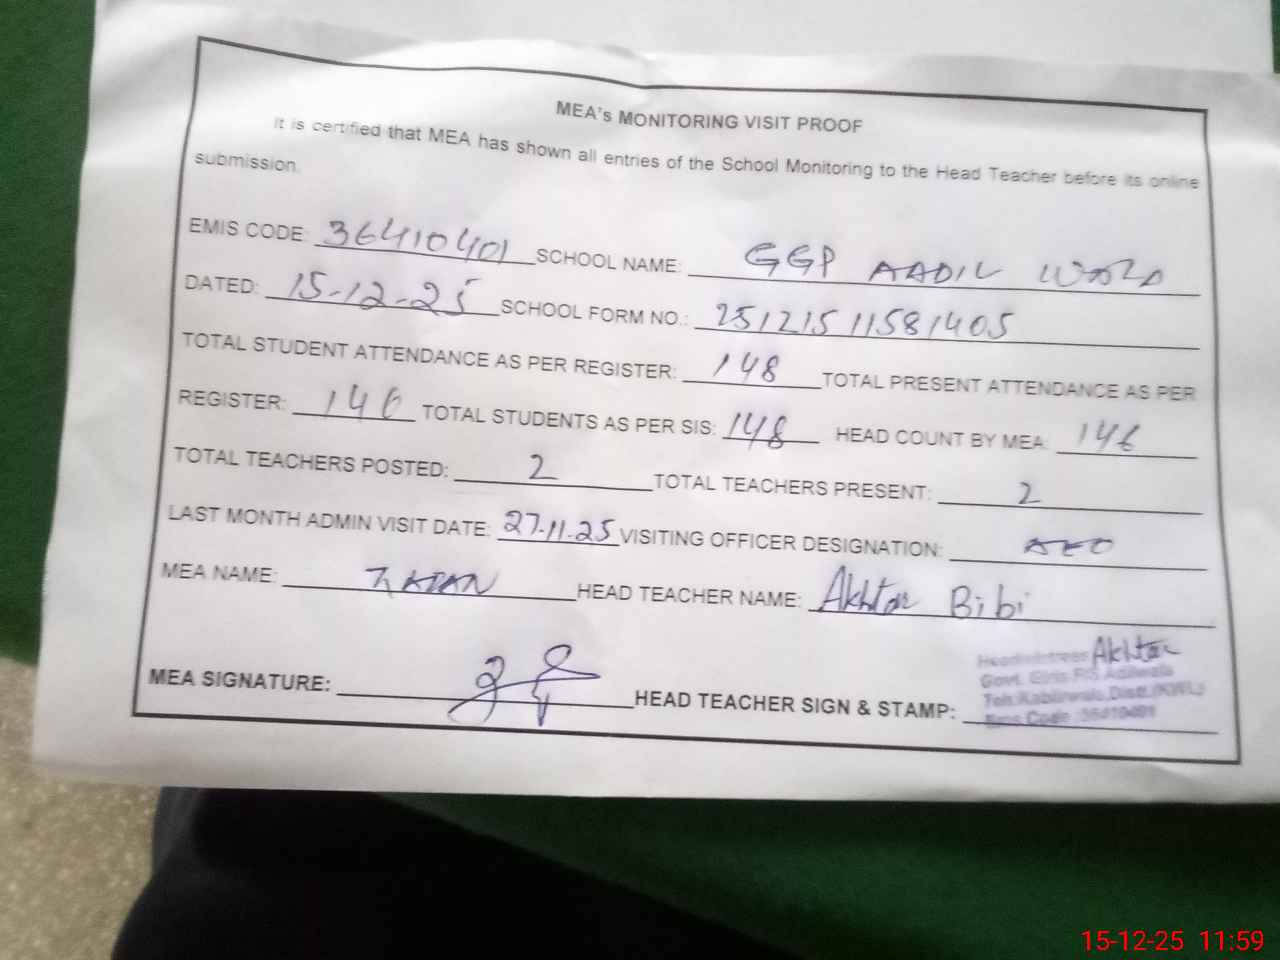 MEA's MONITORING VISIT PROOF
It is certified that MEA has shown all entries of the School Monitoring to the Head Teacher before its online
submission.
EMIS CODE: 36410401 SCHOOL NAME: GGP AADIL
DATED: 15-12-25 SCHOOL FORM NO.: 25121511581405
TOTAL STUDENT ATTENDANCE AS PER REGISTER: 148 TOTAL PRESENT ATTENDANCE AS PER
REGISTER: 146 TOTAL STUDENTS AS PER SIS: 148 HEAD COUNT BY MEA: 146
TOTAL TEACHERS POSTED: 2 TOTAL TEACHERS PRESENT: 2
LAST MONTH ADMIN VISIT DATE: 27-11-25 VISITING OFFICER DESIGNATION: AEO
MEA NAME: HEAD TEACHER NAME: Akhtar Bibi
MEA SIGNATURE: HEAD TEACHER SIGN & STAMP:
Headmistress Akhtar
Govt. Girls P/S Adilwala
Teh: Kabirwala Distt.(KWL)
Emis Code: 36410401
15-12-25 11:59